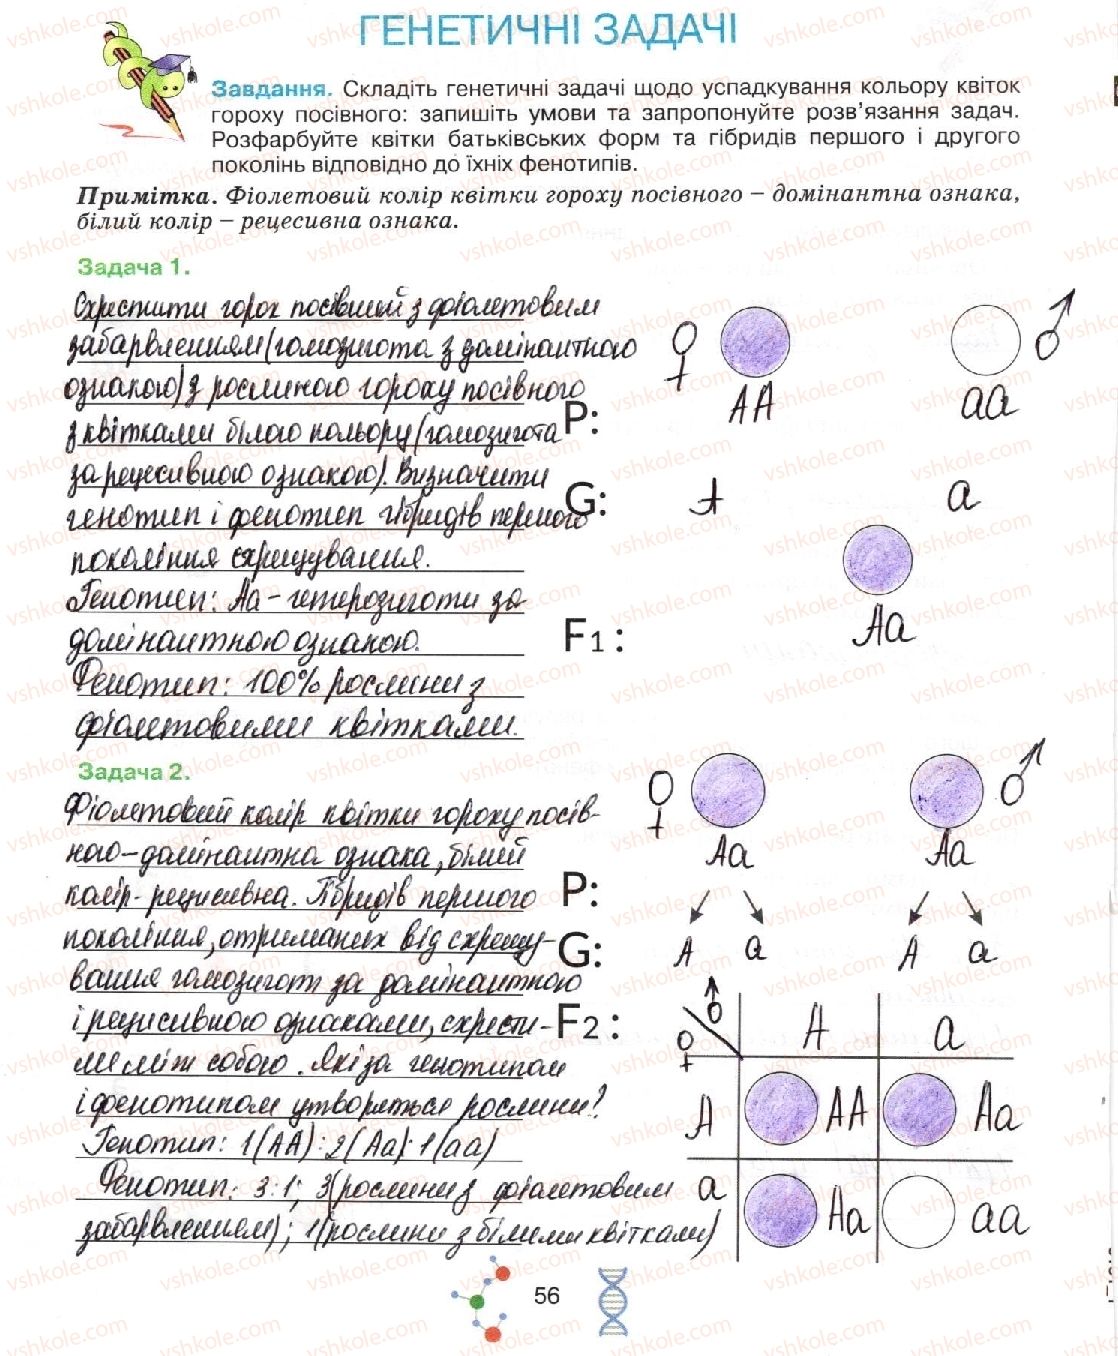 ГЕНЕТИЧНІ ЗАДАЧІ
Завдання. Складіть генетичні задачі щодо успадкування кольору квіток
гороху посівного: запишіть умови та запропонуйте розв’язання задач.
Розфарбуйте квітки батьківських форм та гібридів першого і другого
поколінь відповідно до їхніх фенотипів.
Примітка. Фіолетовий колір квітки гороху посівного – домінантна ознака,
білий колір – рецесивна ознака.
Задача 1.
Схрестити горох посівний з фіолетовим
забарвленням (гомозигота з домінантною
ознакою) з рослиною гороху посівного
з квітками білого кольору (гомозигота
за рецесивною ознакою). Визначити
генотип і фенотип гібридів першого
покоління схрещування.
Генотип: Аа - гетерозиготи за
домінантною ознакою.
Фенотип: 100% рослини з
фіолетовими квітками.
♀ ♂
P: АА аа
G: А а
F1: Аа
Задача 2.
Фіолетовий колір квітки гороху посів-
ного - домінантна ознака, білий
колір - рецисивна. Гібридів першого
покоління, отриманих від схрещу-
вання гомозигот за домінантною
і рецисивною ознаками, схрести-
ли між собою. Які за генотипом
і фенотипом утворяться рослини?
Генотип: 1(АА) : 2(Аа) : 1(аа)
Фенотип: 3:1; 3(рослини з фіолетовим
забарвленням); 1(рослини з білими квітками)
♀ ♂
P: Аа Аа
G: А а А а
F2: ♀ ♂ А а
А АА Аа
а Аа аа
56
vshkole.com